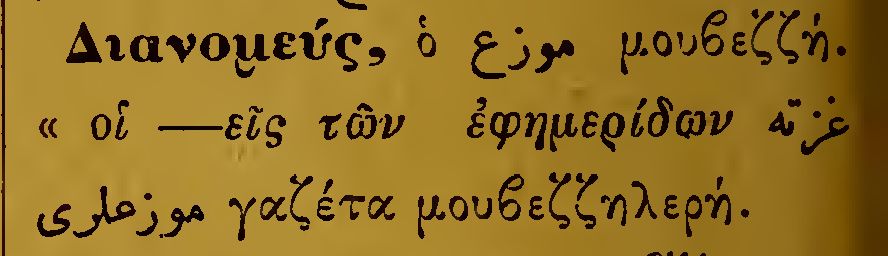 Διανομεύς, ὁ موزع μουβεζζή.
« οἱ —εῖς τῶν ἐφημερίδων غزته
موزعلری γαζέτα μουβεζζηλερή.